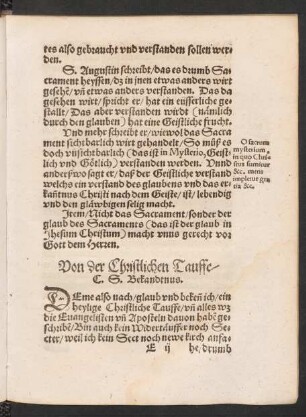 tes also gebraucht vnd verstanden sollen wer-
den.
S. Augustin schreibt/das es drumb Sa-
crament heyssen/dz in jnen etwas anders wirt
gesehē/vñ etwas anders verstanden. Das da
gesehen wirt/spricht er/hat ein eusserliche ge-
stallt/Das aber verstanden wirdt (nämlich
durch den glauben) hat eine Geistliche frucht.
Vnd mehr schreibt er/wiewol das Sacra
ment sichtbarlich wirt gehandelt/So müß es
doch vnsichtbarlich (das ist in Mysterio, Geist-
lich vnd Götlich) verstanden werden. Vnnd
anderßwo sagt er/daß der Geistliche verstand
welchs ein verstand des glaubens vnd das er-
kañtnus Christi nach dem Geiste/ist/lebendig
vnd den gläwbigen selig macht.
O sacrum
mysterium,
in quo Chri-
stus sumitur
&c. mens
impletur gra
tia &c.
Item/Nicht das Sacrament/sonder der
glaub des Sacraments (das ist der glaub in
Jhesum Christum) macht vnns gerecht vor
Gott dem Herren.
Von der Christlichen Tauffe/
C. S. Bekandtnus.
DEme also nach/glaub vnd bekeñ ich/ein
heylige Christliche Tauffe/vñ alles wz
die Euangelisten vñ Aposteln dauon habē ge-
schribē/Bin auch kein Widertäuffer noch Se-
cter/weil ich kein Sect noch newe kirch anfa-
E ij
he, drumb